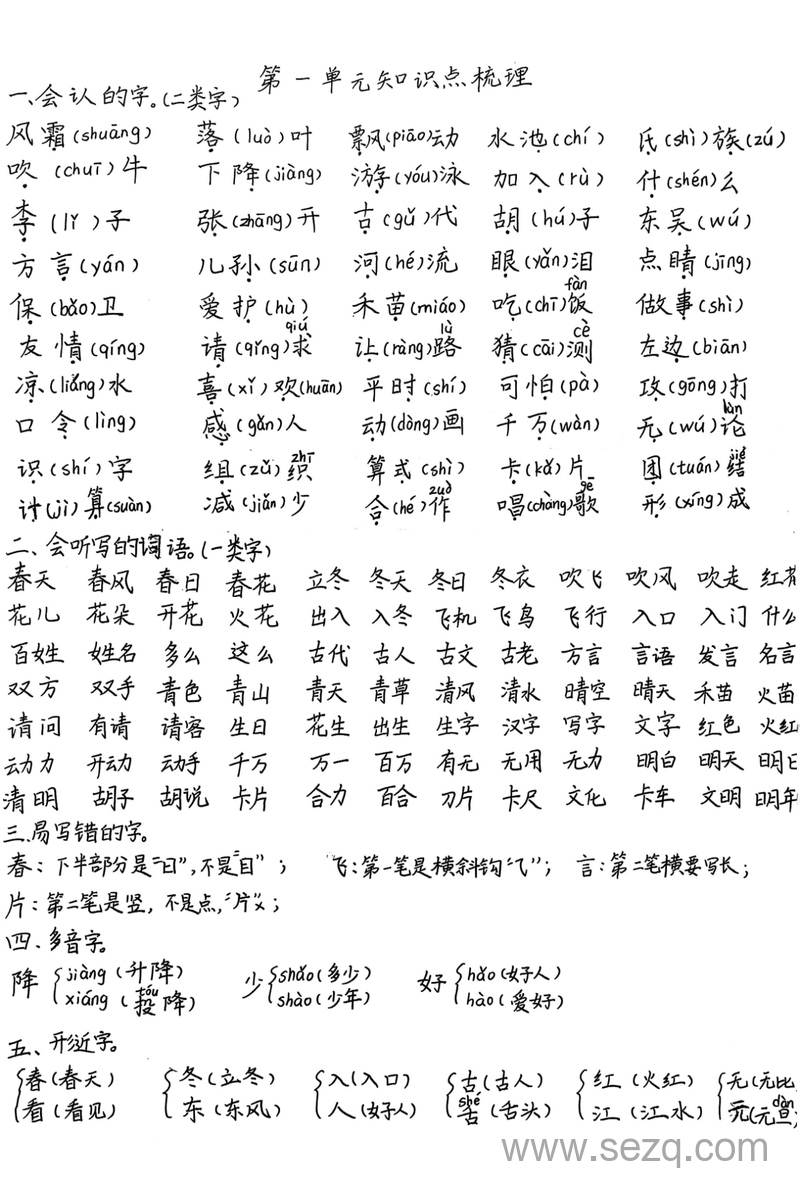 第一单元知识点梳理
一、会认的字。(二类字)
风霜(shuāng) 落(luò)叶 飘风(piāo)动 水池(chí) 氏(shì)族(zú)
吹(chuī)牛 下降(jiàng) 游(yóu)泳 加入(rù) 什(shén)么
李(lǐ)子 张(zhāng)开 古(gǔ)代 胡(hú)子 东吴(wú)
方言(yán) 儿孙(sūn) 河(hé)流 眼(yǎn)泪 点睛(jīng)
保(bǎo)卫 爱护(hù) 禾苗(miáo) 吃(chī)饭fàn 做事(shì)
友情(qíng) 请(qǐng)求qiú 让(ràng)路lù 猜(cāi)测cè 左边(biān)
凉(liáng)水 喜(xǐ)欢(huān) 平时(shí) 可怕(pà) 攻(gōng)打
口令(lìng) 感(gǎn)人 动(dòng)画 千万(wàn) 无(wú)论lùn
识(shí)字 组(zǔ)织zhī 算式(shì) 卡(kǎ)片 团(tuán)结jié
计(jì)算(suàn) 减(jiǎn)少 合(hé)作zuò 唱(chàng)歌gē 形(xíng)成
二、会听写的词语。(一类字)
春天 春风 春日 春花 立冬 冬天 冬日 冬衣 吹飞 吹风 吹走 红花
花儿 花朵 开花 火花 出入 入冬 飞机 飞鸟 飞行 入口 入门 什么
百姓 姓名 多么 这么 古代 古人 古文 古老 方言 言语 发言 名言
双方 双手 青色 青山 青天 青草 清风 清水 晴空 晴天 禾苗 火苗
请问 有请 请客 生日 花生 出生 生字 汉字 写字 文字 红色 火红
动力 开动 动手 千万 万一 百万 有无 无用 无力 明白 明天 明日
清明 胡子 胡说 卡片 合力 百合 刀片 卡尺 文化 卡车 文明 明年
三、易写错的字。
春：下半部分是“日”,不是“目”； 飞：第一笔是横斜钩“乁”； 言：第二笔横要写长；
片：第二笔是竖，不是点,“片”×；
四、多音字。
降{jiàng(升降) 少{shǎo(多少) 好{hǎo(好人)
xiáng(投tóu降) shào(少年) hào(爱好)
五、形近字。
{春(春天) {冬(立冬) {入(入口) {古(古人) {红(火红) {无(无比
看(看见) 东(东风) 人(好人) 舌shé(舌头) 江(江水) 元(元旦dàn)
www.sezq.com